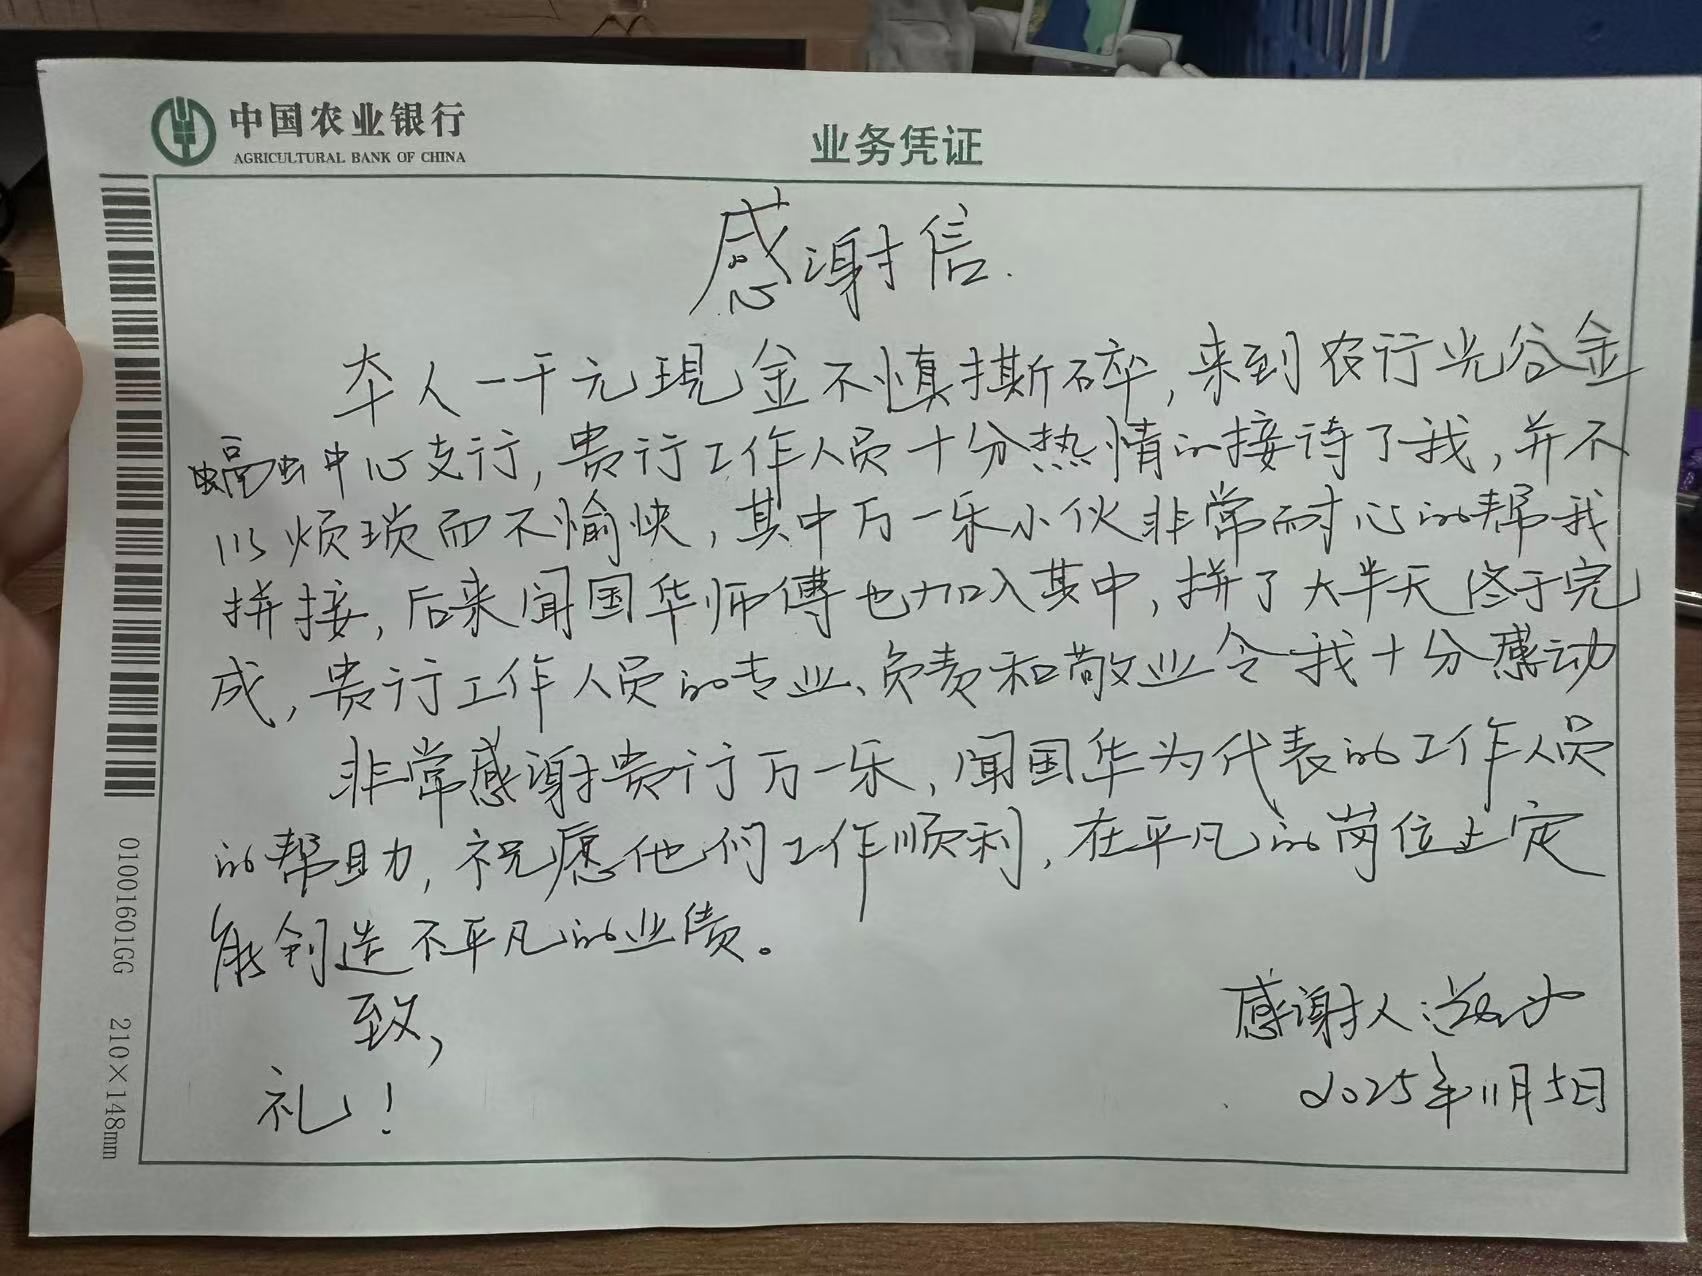 中国农业银行
AGRICULTURAL BANK OF CHINA
业务凭证
感谢信.
本人一千元现金不慎撕碎,来到农行光谷金
融中心支行,贵行工作人员十分热情的接待了我,并不
以烦琐而不愉快,其中万一乐小伙非常耐心的帮我
拼接,后来闻国华师傅也加入其中,拼了大半天终于完
成,贵行工作人员的专业、负责和敬业令我十分感动
非常感谢贵行万一乐,闻国华为代表的工作人员
的帮助,祝愿他们工作顺利,在平凡的岗位上定
能创造不平凡的业绩。
致,
礼!
感谢人:
2025年11月5日
01001601GG 210×148mm